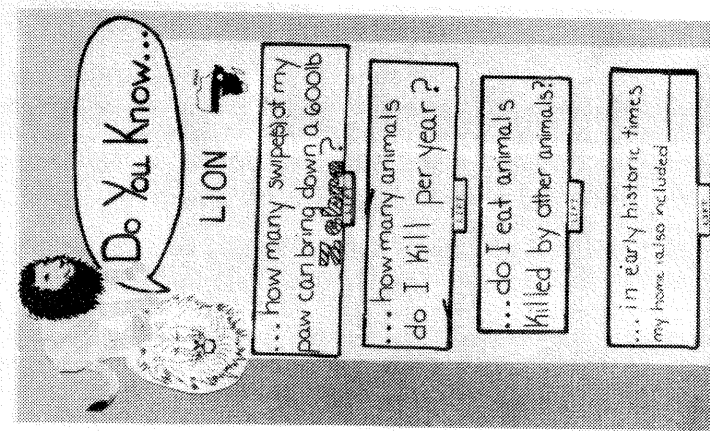 Do You Know...
LION
...how many swipe(s) of my
paw can bring down a 600lb
?
LIFT
...how many animals
do I kill per year?
LIFT
...do I eat animals
killed by other animals?
LIFT
...in early historic times
my home also included
LIFT